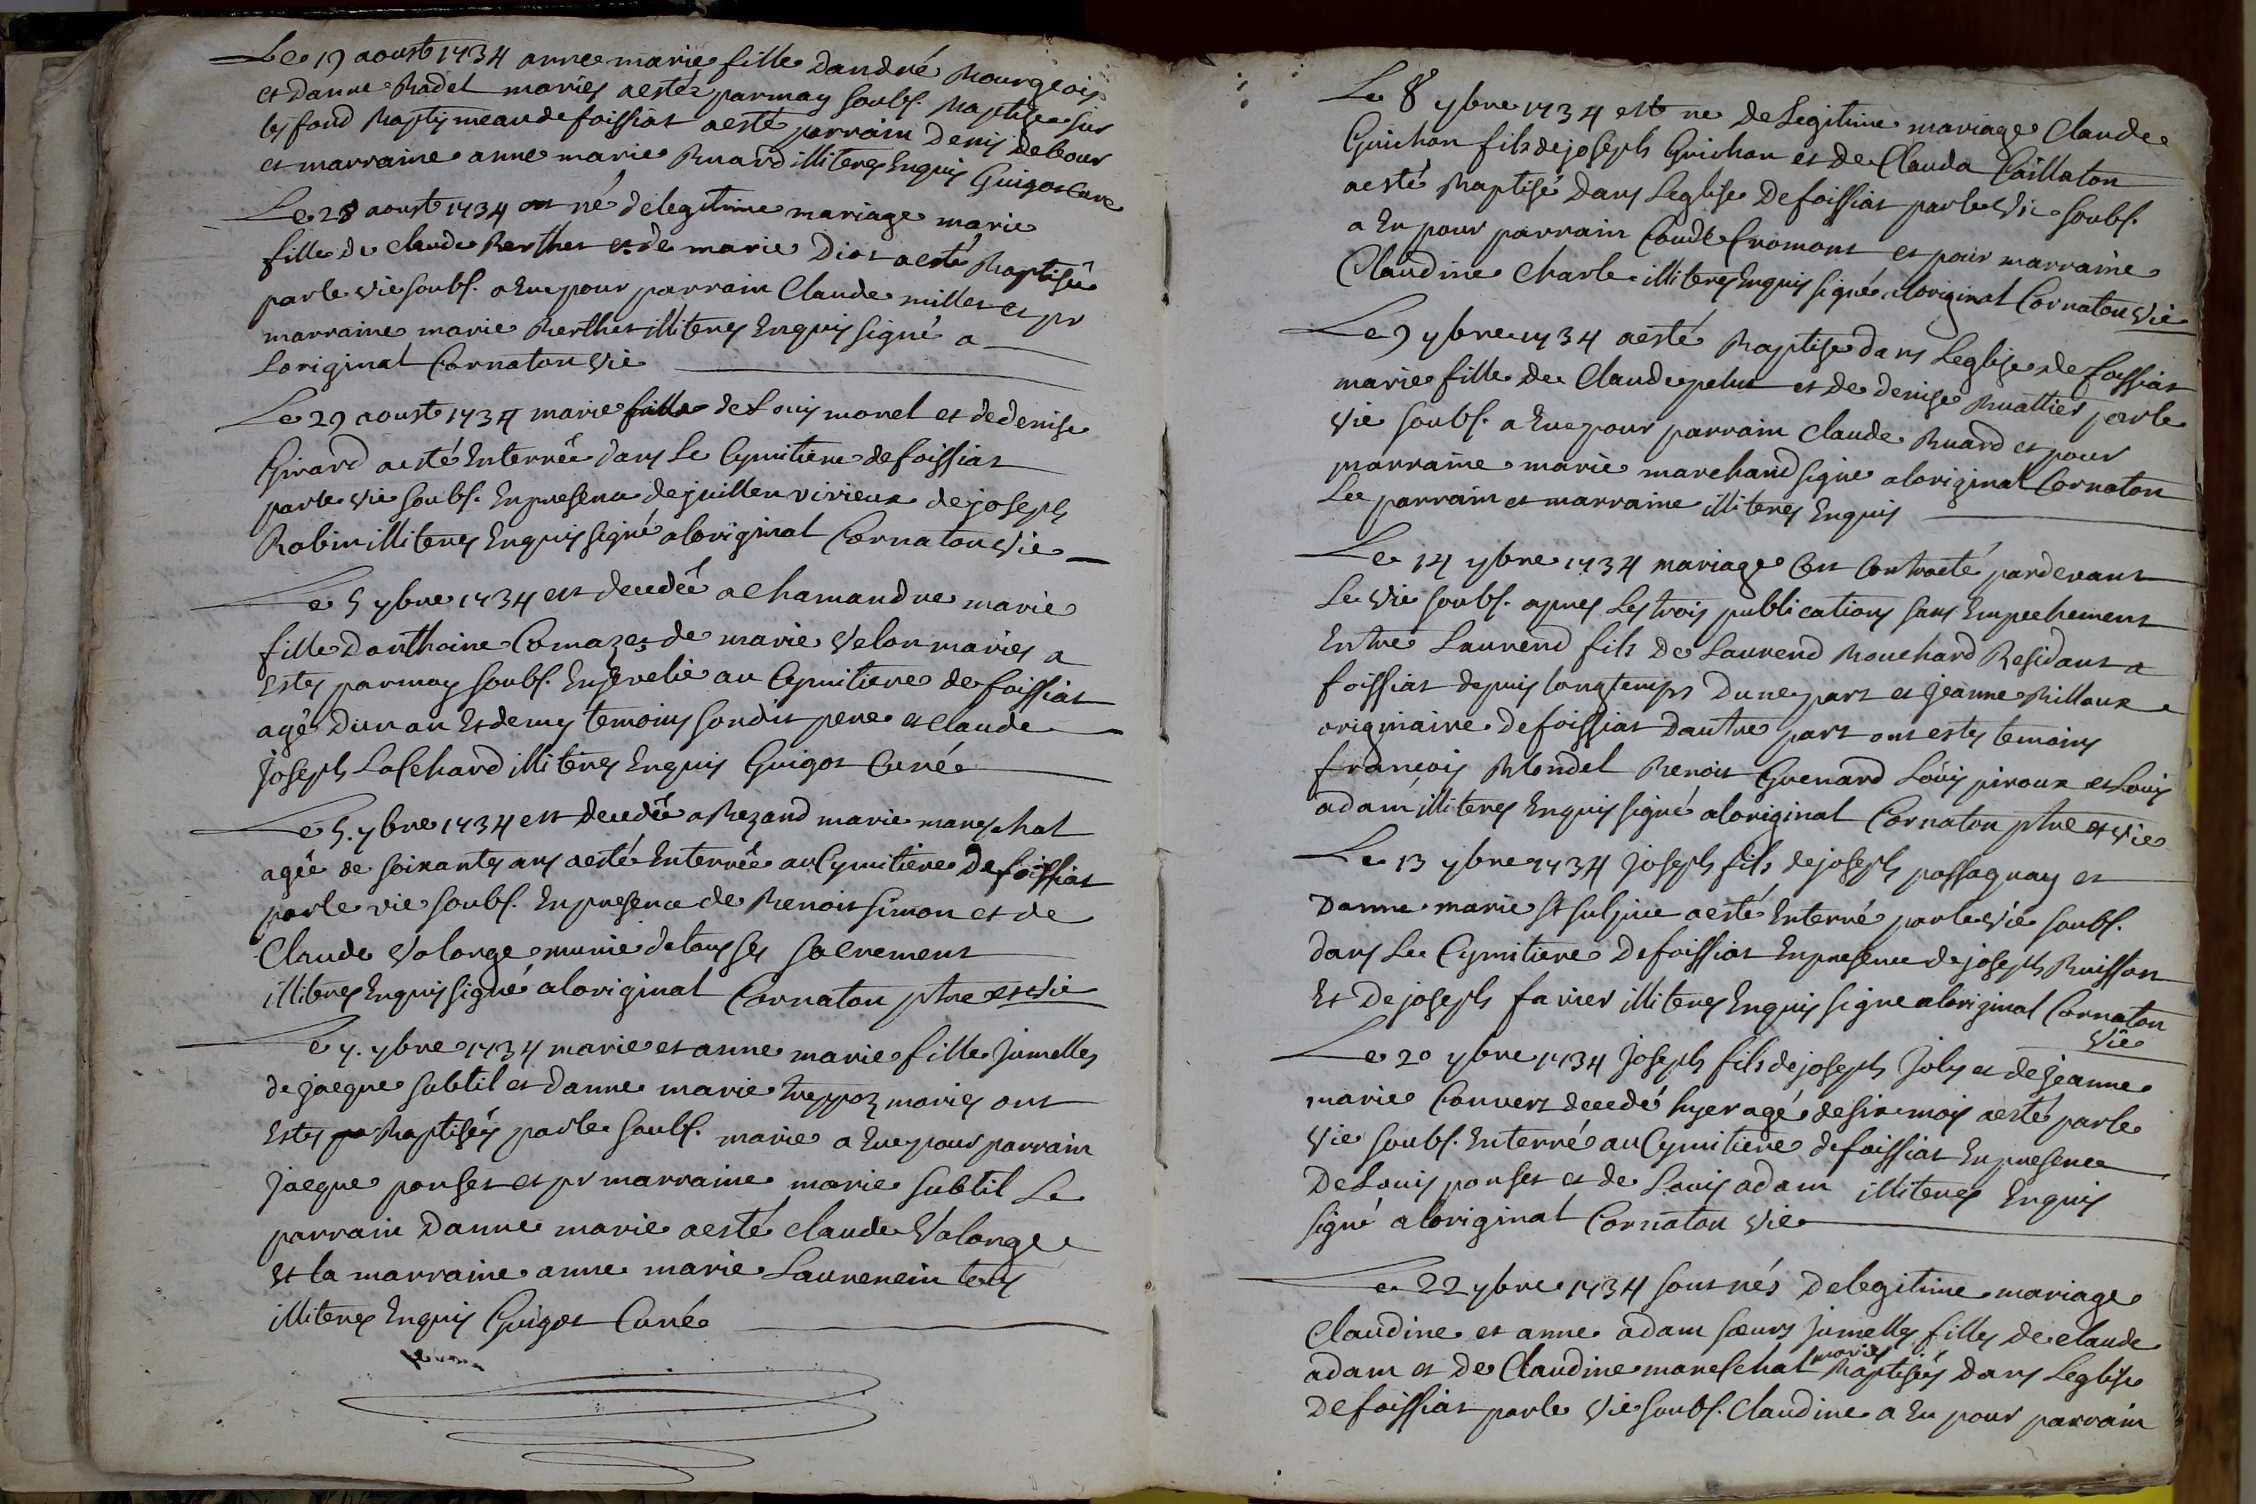 Le 19 aoust 1734 anne marie fille dandré Bourgeois
et danne Badel mariés aesté parmoy soubs. Baptisee sur
les fond Baptismeau de foissiat aesté parrain Denis debour
et marraine anne marie Buard illiteres Enquis Guigot Curé
Le 28 aoust 1734 est né de legitime mariage marie
fille de Claude Berthet et de marie Diot aesté Baptisée
par le vic soubs. a Eue pour parrain Claude millet et pr
marraine marie Berthet illiteres Enquis signé a
Loriginal Cornaton vic
Le 29 aoust 1734 marie fille de Louis morel et de denise
Girard aesté Enterrée dans Le Cymitiere de foissiat
par le vic soubs. En presence de juillen vivieux de joseph
Robin illiteres Enquis signé a loriginal Cornaton vic
Le 5 7bre 1734 est decedée a Chamandre marie
fille danthoine Comaz et de marie Velon mariés a
Estes parmoy soubs. Ensevelie au Cymitiere de foissiat
agé Dun an Et demy temoins sondit pere et Claude
Joseph Laschard illiteres Enquis Guigot Curé
Le 5. 7bre 1734 est decedée a Bezand marie mareschal
agée de soixantes ans aesté Enterrée au Cymitiere De foissiat
par le vic soubs. En presence de Benoit Simon et de
Claude Valonge munie de tous ses sacrement
illiteres Enquis signé a loriginal Cornaton ptre et vic
Le 7. 7bre 1734 marie et anne marie fille Jumelles
de jacque subtil et danne marie treppoz mariés ont
Estes Baptisés par le soubs. marie a Eue pour parrain
jacque ponset et pr marraine marie subtil Le
parrain Danne marie aesté Claude Valonge
Et la marraine anne marie Laurencin tous
illiteres Enquis Guigot Curé
Le 8 7bre 1734 est ne de Legitime mariage Claude
Guichon fils de joseph Guichon et de Clauda Caillaton
aesté Baptisé Dans Leglise De foissiat par le vic soubs.
a Eu pour parrain Claude Cromont et pour marraine
Claudine Charle illiteres Enquis signé a loriginal Cornaton vic
Le 9 7bre 1734 aesté Baptise dans Leglise de foissiat
marie fille de Claude pelus et de denise Buattier par le
vic soubs. a Eue pour parrain Claude Buard et pour
marraine marie marchand signé a loriginal Cornaton
Le parrain et marraine illiteres Enquis
Le 14 7bre 1734 mariage Est Contracté pardevant
Le vic soubs. apres Les trois publications sans Empechement
Entre Laurend fils De Laurend Bouchard Residant a
foissiat depuis longtemps Dune part et jeanne Billoux
originaire de foissiat Dautre part ont estes temoins
francois Blondel Benoit Guenard Louis piroux et Louis
adam illiteres Enquis signé a loriginal Cornaton ptre et vic
Le 13 7bre 1734 Joseph fils de joseph passaquay et
Danne marie St Sulpice aesté Enterré par le vic soubs.
dans Le Cymitiere De foissiat En presence de joseph Buisson
Et De joseph favier illiteres Enquis signe a loriginal Cornaton
vic
Le 20 7bre 1734 Joseph fils de joseph Joly et de jeanne
marie Convert decedé hyer agé de six mois aesté par le
vic soubs. Enterré au Cymitiere de foissiat En presence
De Louis ponset et de Louis adam illiteres Enquis
signé a loriginal Cornaton vic
Le 22 7bre 1734 sont nés De legitime mariage
Claudine et anne adam sœurs jumelles filles de claude
adam et de Claudine mareschal mariés Baptisées dans Leglise
De foissiat par le vic soubs. Claudine a Eu pour parrain